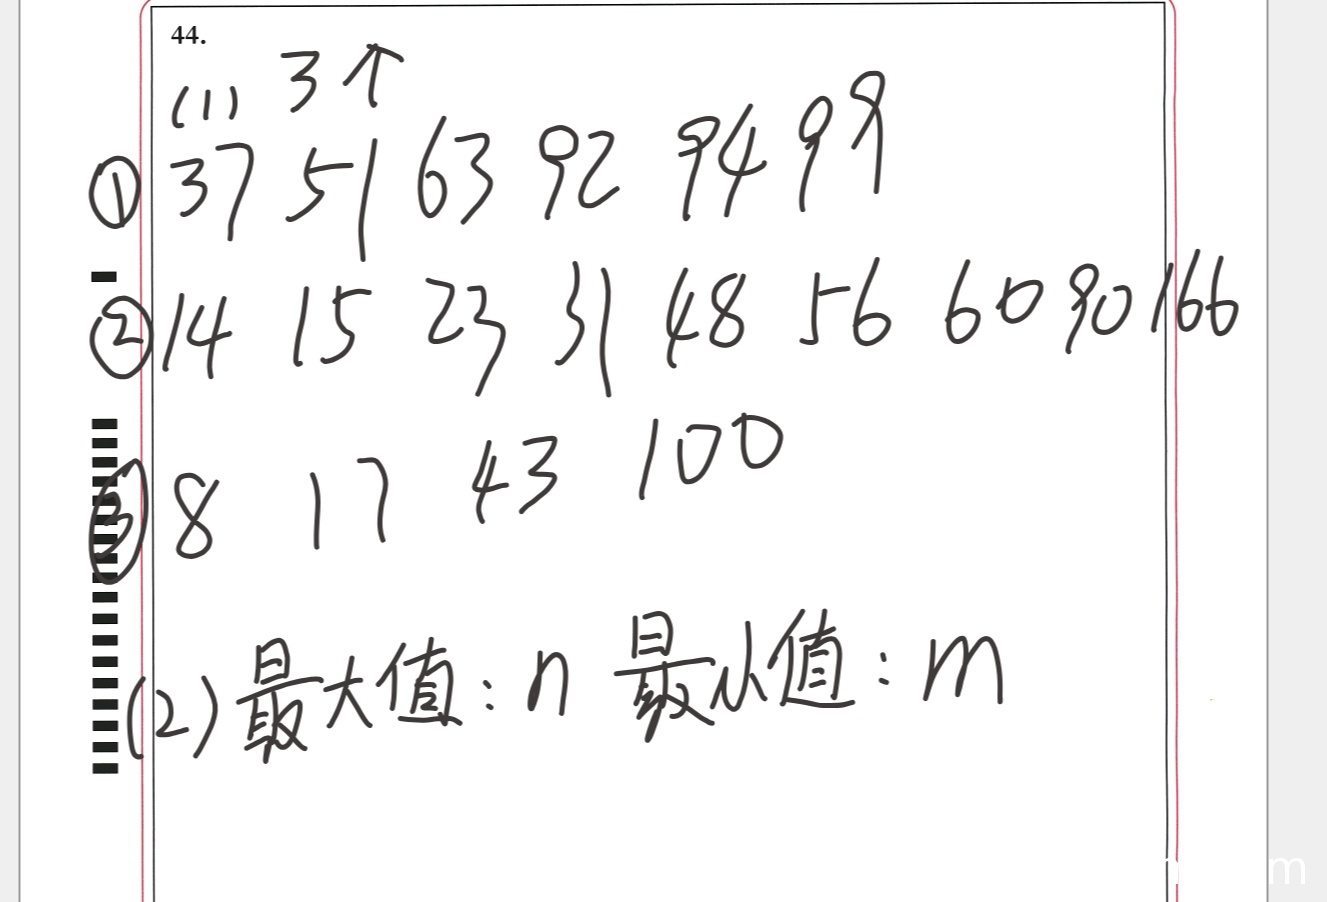 44.
(1) 3个
① 37 51 63 92 94 99
② 14 15 23 31 48 56 60 90 166
③ 8 17 43 100
(2) 最大值：n 最小值：m
m